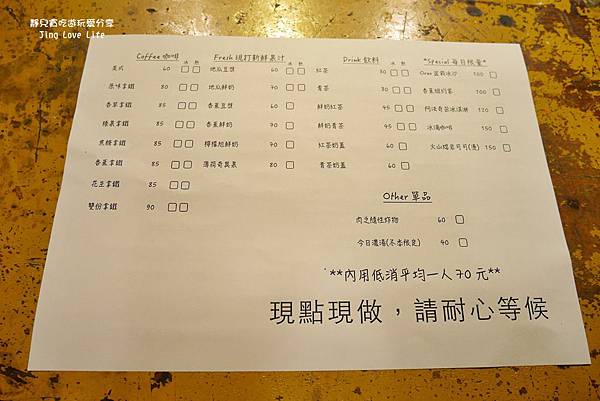 靜兒貪吃遊玩愛分享
Jing Love Life
Coffee 咖啡 冰 熱
美式 60
原味拿鐵 80
香草拿鐵 85
榛果拿鐵 85
焦糖拿鐵 85
香蕉拿鐵 85
花生拿鐵 85
雙份拿鐵 90
Fresh 現打新鮮果汁 冰 熱
地瓜豆漿 60
地瓜鮮奶 70
香蕉豆漿 60
香蕉鮮奶 70
檸檬旭鮮奶 70
薄荷奇異果 80
Drink 飲料 冰 熱
紅茶 30
青茶 30
鮮奶紅茶 45
鮮奶青茶 45
紅茶奶蓋 60
青茶奶蓋 60
*Special 每日限量*
Oreo 冰沙 100
香蕉 100
阿法奇朵冰淇淋 120
冰滴咖啡 150
火山熔岩可可(燙) 150
Other 單品
肉乏隨性炸物 60
今日濃湯(冬季限定) 40
**內用低消平均一人 70 元**
現點現做，請耐心等候